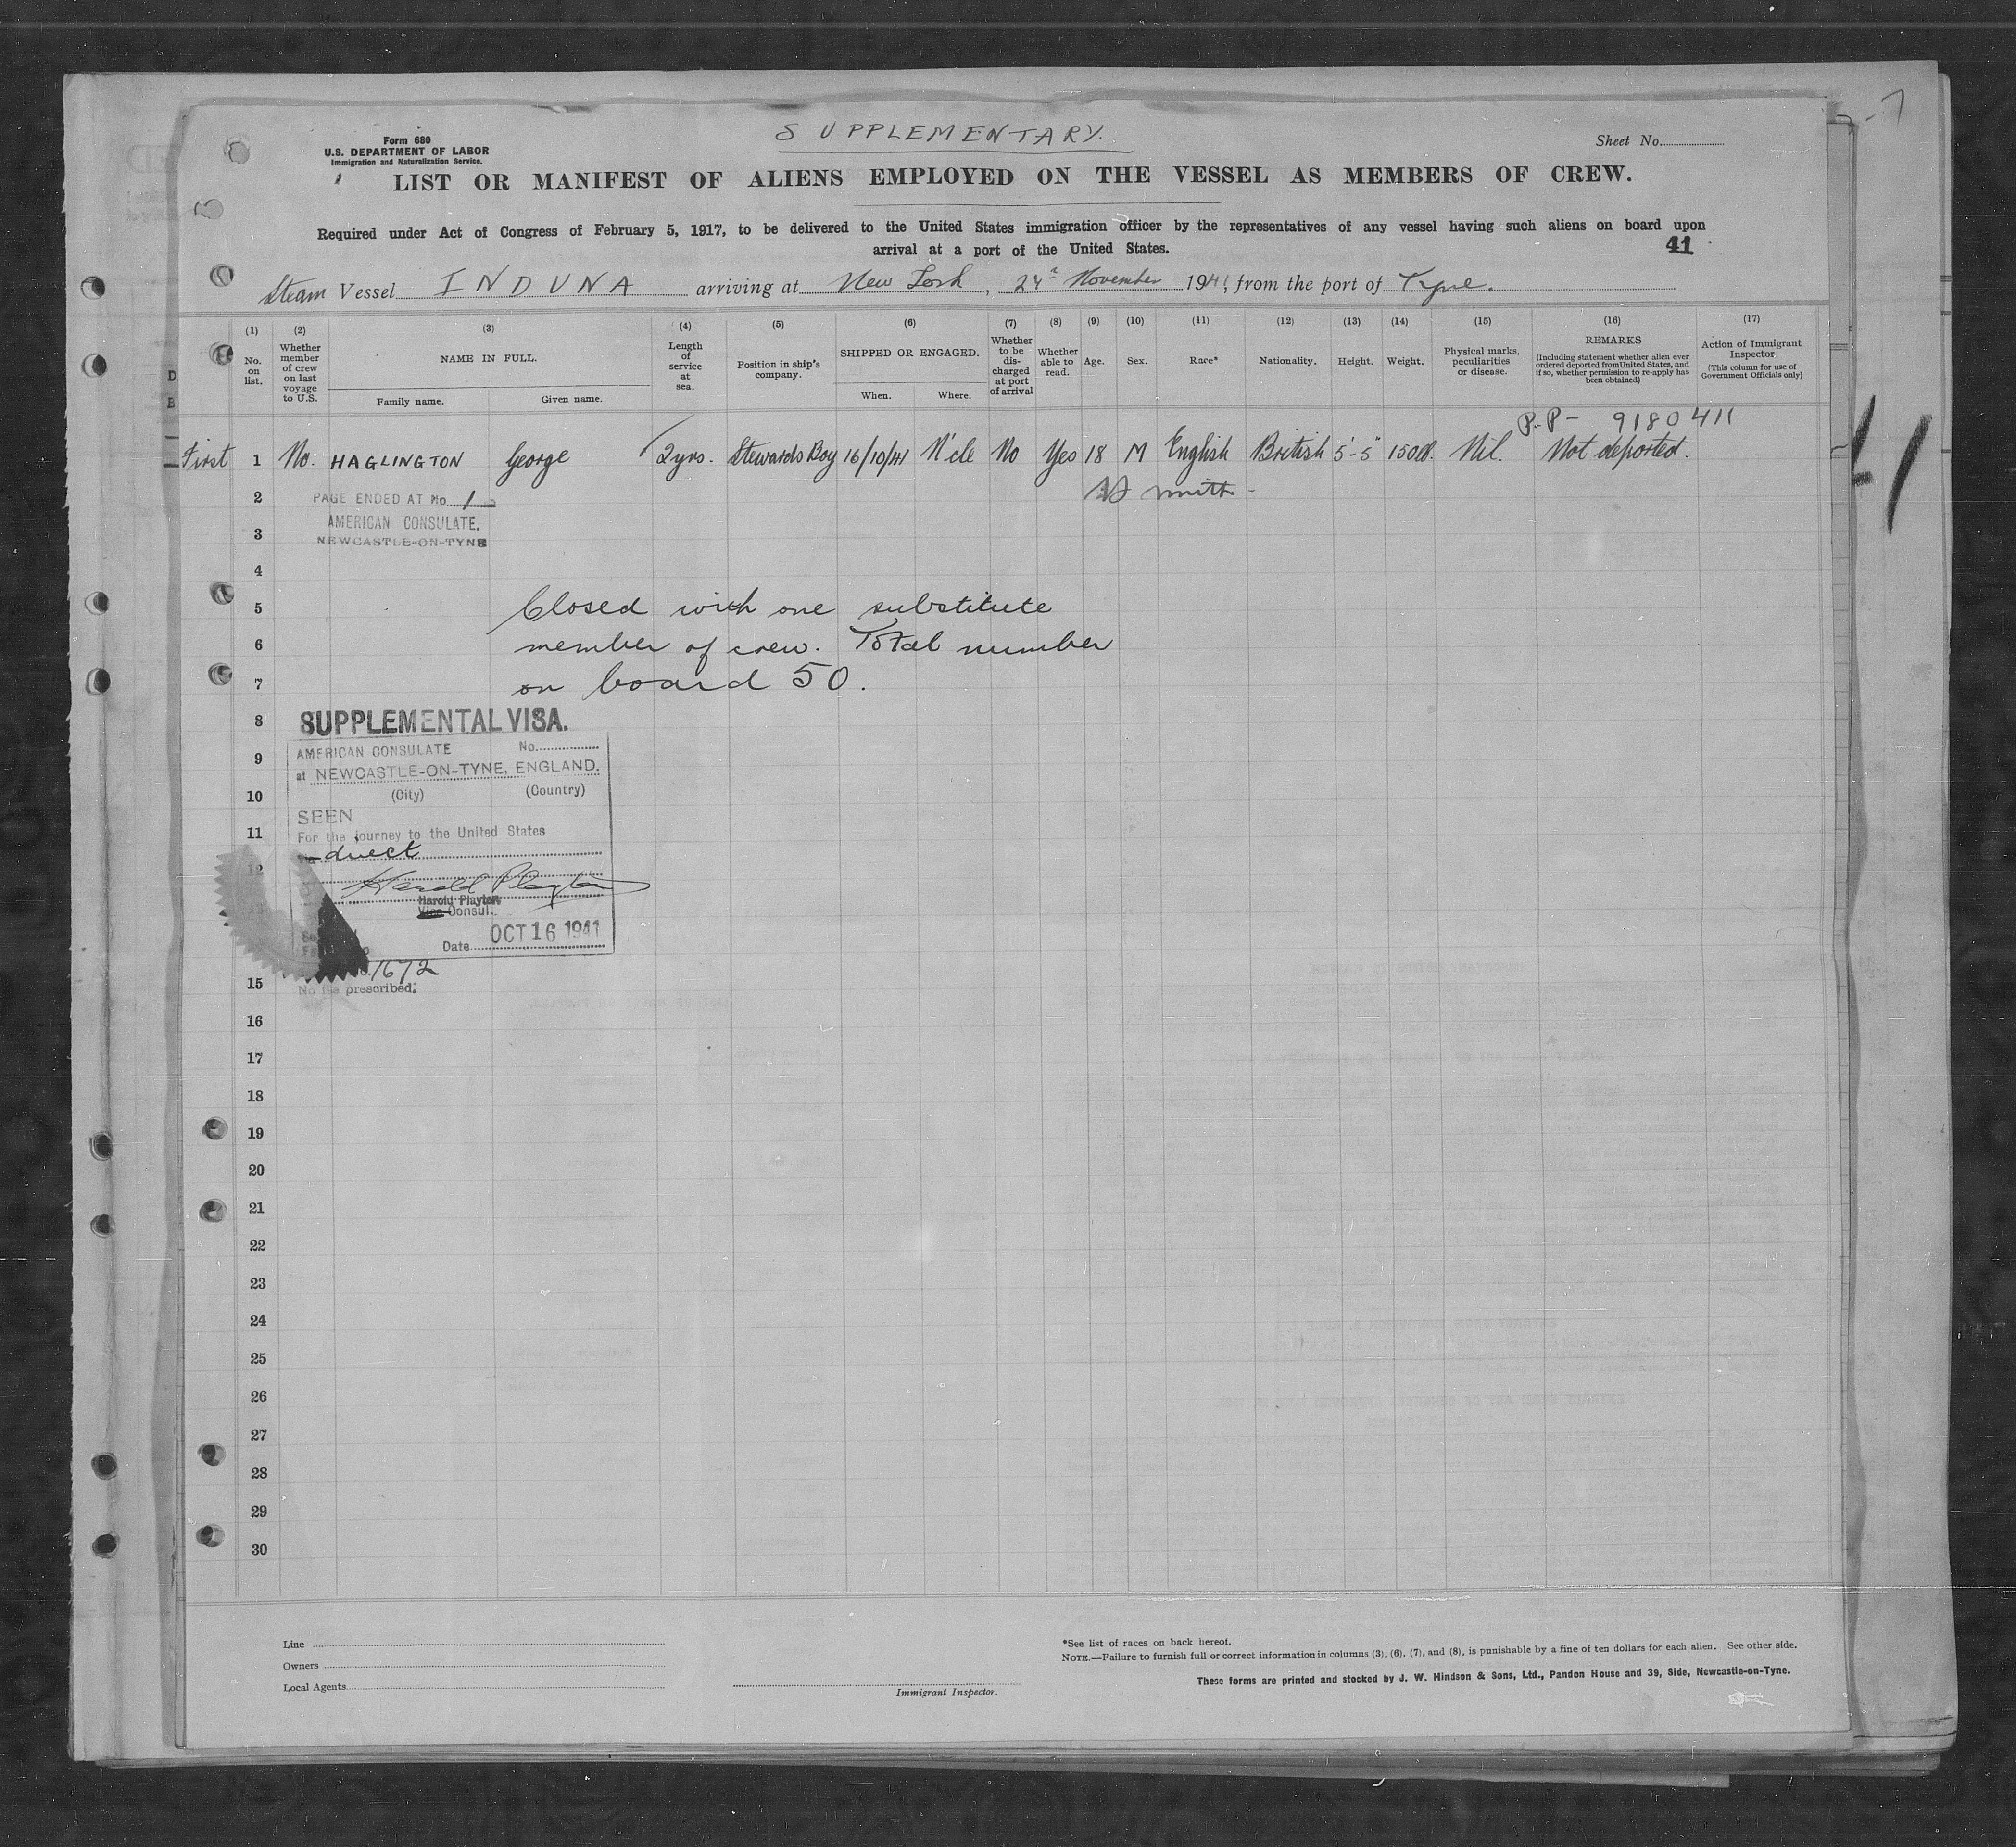 SUPPLEMENTARY.
Form 680
U.S. DEPARTMENT OF LABOR
Immigration and Naturalization Service.
Sheet No.
LIST OR MANIFEST OF ALIENS EMPLOYED ON THE VESSEL AS MEMBERS OF CREW.
Required under Act of Congress of February 5, 1917, to be delivered to the United States immigration officer by the representatives of any vessel having such aliens on board upon
arrival at a port of the United States.
41
Steam Vessel INDUNA arriving at New York, 24th November 1941, from the port of Tyne.
(1) No. on list.
(2) Whether member of crew on last voyage to U.S.
(3) NAME IN FULL.
Family name. Given name.
(4) Length of service at sea.
(5) Position in ship's company.
(6) SHIPPED OR ENGAGED.
When. Where.
(7) Whether to be discharged at port of arrival
(8) Whether able to read.
(9) Age.
(10) Sex.
(11) Race*
(12) Nationality.
(13) Height.
(14) Weight.
(15) Physical marks, peculiarities or disease.
(16) REMARKS
(Including statement whether alien ever ordered deported from United States, and if so, whether permission to re-apply has been obtained)
(17) Action of Immigrant Inspector
(This column for use of Government Officials only)
P.P- 9180411
First 1 No. HAGLINGTON George 2yrs. Stewards Boy 16/10/41 N'cle No Yes 18 M English British 5'-5" 150 Nil. Not deported.
41
2
PAGE ENDED AT No 1
AMERICAN CONSULATE.
3
NEWCASTLE-ON-TYNE
4
5 Closed with one substitute
6 member of crew. Total number
7 on board 50.
8 SUPPLEMENTAL VISA.
9 AMERICAN CONSULATE No.
at NEWCASTLE-ON-TYNE, ENGLAND.
10 (City) (Country)
SEEN
11 For the journey to the United States
direct
12
Harold Playton
Harold Playton
Vice Consul.
Date OCT 16 1941
1672
15 No fee prescribed.
16
17
18
19
20
21
22
23
24
25
26
27
28
29
30
Line
Owners
Local Agents
Immigrant Inspector.
*See list of races on back hereof.
NOTE.—Failure to furnish full or correct information in columns (3), (6), (7), and (8), is punishable by a fine of ten dollars for each alien. See other side.
These forms are printed and stocked by J. W. Hindson & Sons, Ltd., Pandon House and 39, Side, Newcastle-on-Tyne.